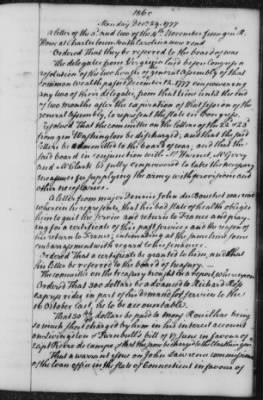 Monday Decr. 29, 1777
A letter of the 3d. and two of the 4th. November from genl. R.
Howe at Charlestown South Carolina were read
Ordered That they be referred to the board of war
The delegates from Virginia laid before Congress a
resolution of the two houses of general Assembly of that
Common wealth passed December 12, 1777 empowering
any two of their delegates, from that time until the end
of two months after the expiration of that session of the
general Assembly, to represent the state in Congress,
Resolved That the committee on the letters of the 22 & 23
from gen Washington be discharged, and that the said
letters be committed to the board of war, and that the
said board in conjunction with Mr
be fully empowered to take the necessary
measures for supplying the army with provisions and
other necessaries.
A letter from major Dennis John du Bouchet was read
wherein he represents, that his bad state of health obliges
him to quit the service and return to France and pray-
ing for a certificate of his past services and the reason of
his return to France,
embarrassment with regard to his finances
Ordered That a certificate be granted to him, and that
his letter be referred to the board of treasury.
The committee on the treasury brought in a report, whereupon
Ordered That 300 dollars be advanced to Richard Ross
express rider in part of his demand for service to the
16 October last, he to be accountable.
That 30 dollars be paid to Mons
so much short charged by him on his interest account
on Livingston & Turnbull's bill of 17 June in favour of
That a warrant issue on John Lawrence commissioner
of the loan office in the state of Connecticut in favour of